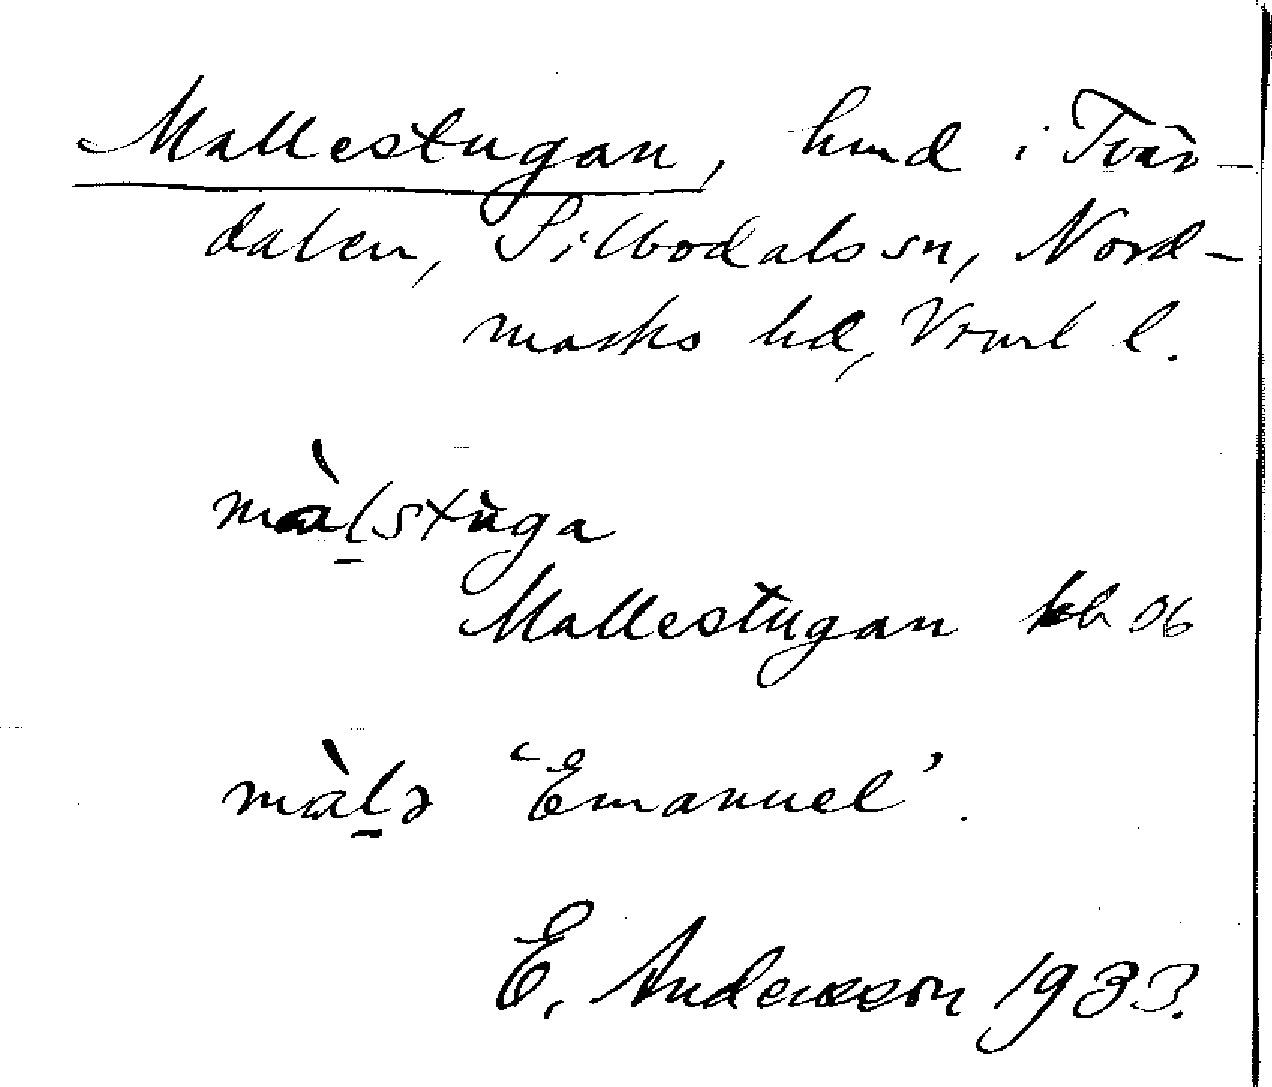 Mallestugan, hmd i Tvär-
dalen, Silbodals sn, Nord-
marks hd, Vrml l.
mà̀l̠stùga
Mallestugan kb 06
mà̀l̠ə ‘Emanuel’.
E. Andersson 1933.